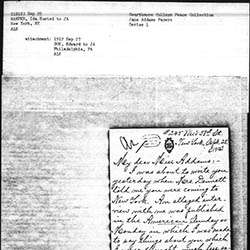 [1912] Sep 25
HARPER, Ida Husted to JA
New York, NY
ALS
Swarthmore College Peace Collection
Jane Addams Papers
Series 1
attachment: 1912 Sep 27
Edward to JA
Philadelphia, PA
ALS
New York, Sept. 25
My dear Miss Addams:—
I was about to write you
yesterday when Mrs. Bennett
told me you were coming to
New York. An alleged inter-
view with me was published
in the American Sunday or
Monday in which I was made
to say things about you which